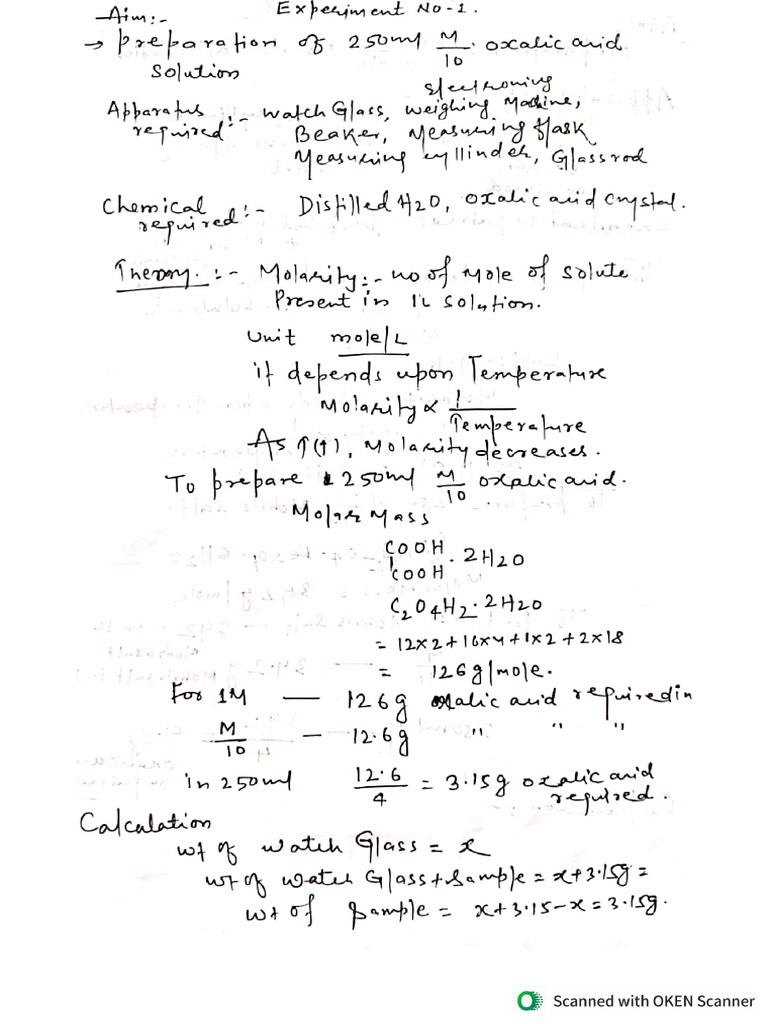 Experiment No-1.
Aim:-
→ Preparation of 250ml M/10 oxalic acid
solution
Apparatus required:- watch Glass, electronic weighing Machine,
Beaker, Measuring flask
Measuring cyllinder, Glass rod
Chemical required:- Distilled H2O, oxalic acid crystal.
Theory:- Molarity:- no of mole of solute
Present in 1L solution.
Unit mole/L
it depends upon Temperature
Molarity ∝ 1/Temperature
As T(↑), Molarity decreases.
To prepare 250ml M/10 oxalic acid.
Molar Mass
COOH
COOH . 2H2O
C2O4H2.2H2O
= 12x2+16x4+1x2+2x18
= 126g/mole.
For 1M — 126g oxalic acid required in
M/10 — 12.6g " " "
in 250ml 12.6/4 = 3.15g oxalic acid
required.
Calculation
wt of watch Glass = x
wt of watch Glass+Sample = x+3.15g =
wt of Sample = x+3.15-x = 3.15g.
Scanned with OKEN Scanner